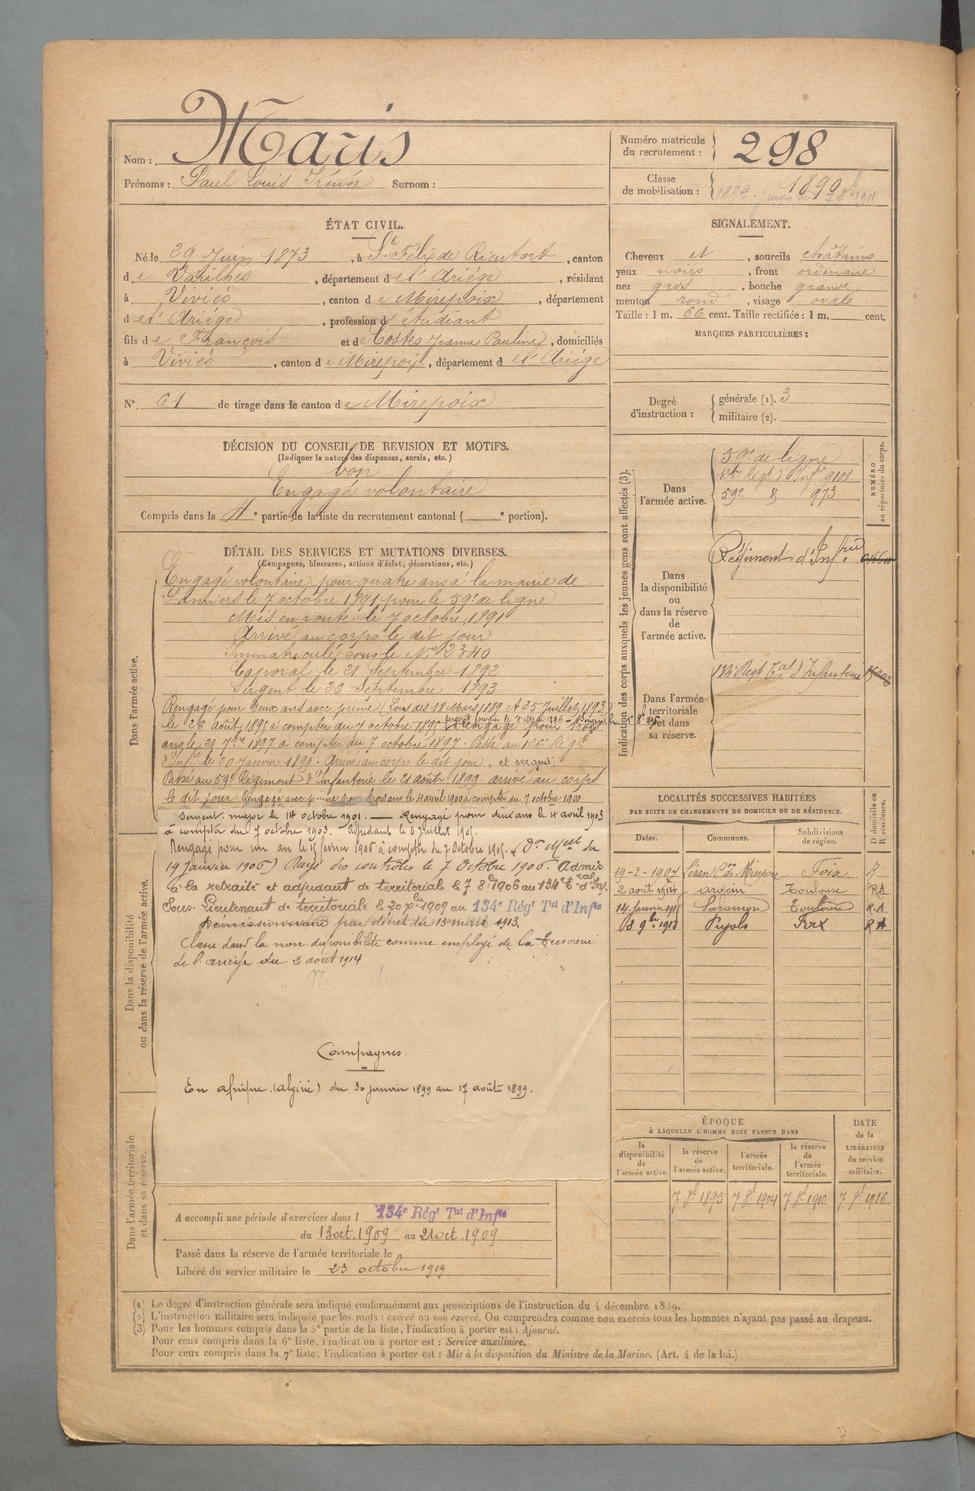 Nom : Maris
Prénoms : Paul Louis Irénée Surnom :
Numéro matricule du recrutement : 298
Classe de mobilisation : 1890
ÉTAT CIVIL.
Né le 29 Juin 1873, à St Félix de Rieutort, canton
de Varilhes, département de l'Ariége, résidant
à Viviès, canton de Mirepoix, département
de l'Ariége, profession d'étudiant
fils de François et de Costes Jeanne Pauline, domiciliés
à Viviès, canton de Mirepoix, département de l'Ariége
N° 61 de tirage dans le canton de Mirepoix
DÉCISION DU CONSEIL DE REVISION ET MOTIFS.
(Indiquer la nature des dispenses, sursis, etc.)
bon
Engagé volontaire
Compris dans la 4e partie de la liste du recrutement cantonal ( e portion).
SIGNALEMENT.
Cheveux et , sourcils châtains
yeux noirs , front ordinaire
nez gros , bouche grande
menton rond , visage ovale
Taille : 1 m. 66 cent. Taille rectifiée : 1 m. cent.
MARQUES PARTICULIÈRES :
Degré d'instruction : générale (1). 3
militaire (2).
DÉTAIL DES SERVICES ET MUTATIONS DIVERSES.
(Campagnes, blessures, actions d'éclat, décorations, etc.)
Dans l'armée active.
Engagé volontaire pour quatre ans à la mairie de
Pamiers le 7 octobre 1891 pour le 59e de ligne
Mis en route le 7 octobre 1891
Arrivé au corps le dit jour
Immatriculé sous le N° 2340
Caporal le 21 Septembre 1892
Sergent le 26 Septembre 1893
Rengagé pour deux ans avec prime (Lois des 18 Mars 1889 et 25 Juillet 1893)
le 26 août 1895 à compter du 7 octobre 1895
1897 à compter du 7 octobre 1897. Passé au
d'Infie le 30 Janvier 1899. Arrivé au corps le dit jour, et sergent.
Passé au 59e Régiment d'Infanterie le 21 août 1899 arrivé au corps
le dit jour. Rengagé avec prime trois ans le 4 avril 1900 à compter du 7 octobre 1900
Sergent major le 14 octobre 1901. — Rengagé pour deux ans le 4 avril 1903
à compter du 7 octobre 1903. Adjudant le 6 juillet 1905.
Rengagé pour un an le 15 février 1906 à compter du 7 octobre 1905. (Dn Melle du
19 janvier 1906) Rayé des contrôles le 7 octobre 1906 Admis
à la retraite et adjudant de territoriale le 7 8bre 1906 au 134e Tal d'Inf.
Sous-Lieutenant de territoriale le 20 1909 au 134e Régt Tal d'Infie
Démissionnaire par décret du 13 mars 1913.
Classé dans la non disponibilité comme employé de la Trésorerie
de l'ariège du 2 août 1914
Dans la disponibilité ou dans la réserve de l'armée active.
Campagnes.
En afrique (algérie) du 30 janvier 1899 au 17 août 1899.
Dans l'armée territoriale et dans sa réserve.
A accompli une période d'exercices dans l 134e Régt Tal d'Infie
du 13 oct. 1909 au 21 oct. 1909
Passé dans la réserve de l'armée territoriale le
Libéré du service militaire le 23 octobre 1919.
Indication des corps auxquels les jeunes gens sont affectés (3).
NUMÉRO au répertoire du corps.
Dans l'armée active.
59e de ligne
59e d° 973
Dans la disponibilité ou dans la réserve de l'armée active.
Régiment d'Infrie
Dans l'armée territoriale et dans sa réserve.
134 Regt Tal d'Infanterie
LOCALITÉS SUCCESSIVES HABITÉES
PAR SUITE DE CHANGEMENTS DE DOMICILE OU DE RÉSIDENCE.
Dates. Communes. Subdivisions de région. D domicile ou R résidence.
19-2-1907 Con de Mirepoix Foix R
2 août 1911 Toulouse RA
14 janvier Toulouse R.A
Pujols Foix RA
ÉPOQUE
A LAQUELLE L'HOMME DOIT PASSER DANS
la disponibilité de l'armée active.
la réserve de l'armée active.
l'armée territoriale.
la réserve de l'armée territoriale.
DATE de la LIBÉRATION du service militaire.
7 8bre 1895 7 8bre 1904 7 8bre 1910 7 8bre 1916
(1) Le degré d'instruction générale sera indiqué conformément aux prescriptions de l'instruction du 4 décembre 1889.
(2) L'instruction militaire sera indiquée par les mots : exercé ou non exercé. On comprendra comme non exercés tous les hommes n'ayant pas passé au drapeau.
(3) Pour les hommes compris dans la 5e partie de la liste, l'indication à porter est : Ajourné.
Pour ceux compris dans la 6e liste, l'indication à porter est : Service auxiliaire.
Pour ceux compris dans la 7e liste, l'indication à porter est : Mis à la disposition du Ministre de la Marine. (Art. 4 de la loi.)